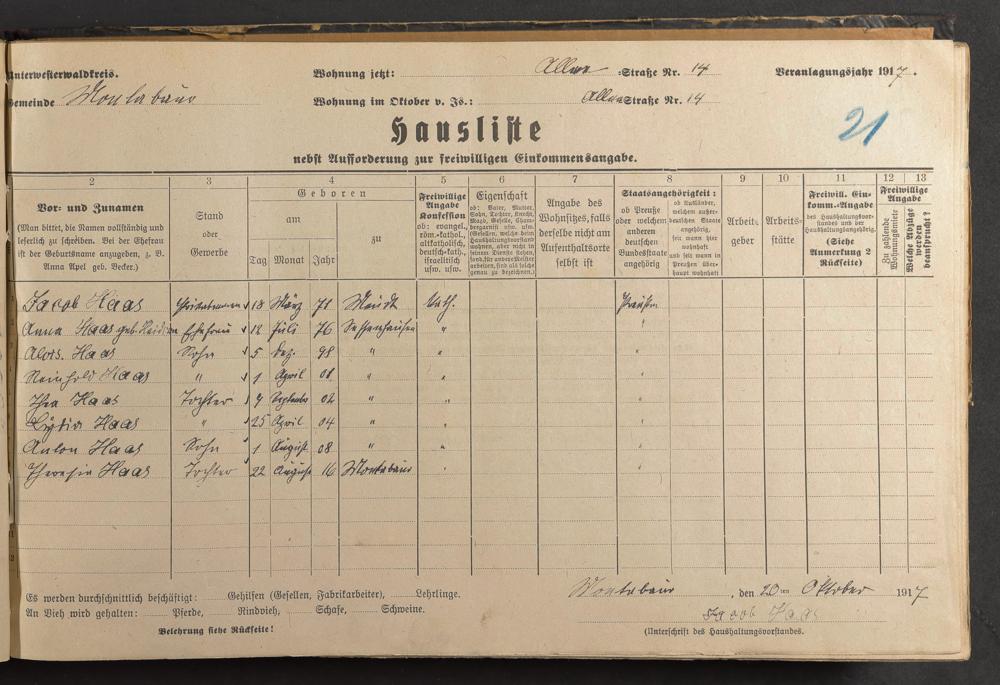 Unterwesterwaldkreis.
Wohnung jetzt: Allee -Straße Nr. 14
Veranlagungsjahr 1917.
Gemeinde Montabaur
Wohnung im Oktober v. Js.: Allee Straße Nr. 14
21
Hausliste
nebst Aufforderung zur freiwilligen Einkommensangabe.
2 3 4 5 6 7 8 9 10 11 12 13
Vor- und Zunamen
(Man bittet, die Namen vollständig und
leserlich zu schreiben. Bei der Ehefrau
ist der Geburtsname anzugeben, z. B.
Anna Apel geb. Becker.)
Stand
oder
Gewerbe
Geboren
am
zu
Tag Monat Jahr
Freiwillige
Angabe
Konfession
ob: evangel.,
röm.-kathol.,
altkatholisch,
deutsch-kath.,
israelitisch
usw. usw.
Eigenschaft
ob: Vater, Mutter,
Sohn, Tochter, Knecht,
Magd, Geselle, Cham-
bergarnist usw. usw.
(Gesellen, welche beim
Haushaltungsvorstand
wohnen, aber nicht in
seinem Dienste stehen,
sond. für andere Meister
arbeiten, sind als solche
genau zu bezeichnen.)
Angabe des
Wohnsitzes, falls
derselbe nicht am
Aufenthaltsorte
selbst ist
Staatsangehörigkeit:
ob Preuße
oder welchem
anderen
deutschen
Bundesstaate
angehörig
ob Ausländer,
welchem außer-
deutschen Staate
angehörig,
seit wann hier
wohnhaft
und seit wann in
Preußen über-
haupt wohnhaft
Arbeit-
geber
Arbeits-
stätte
Freiwill. Ein-
komm.-Angabe
des Haushaltungsvor-
standes und der
Haushaltungsangehörig.
(Siehe
Anmerkung 2
Rückseite)
Freiwillige
Angabe
Zu zahlende
Wohnungsmiete
Welche Abzüge
werden
beansprucht?
Jacob Haas 18 März 71 Kath. Preußen
Anna Haas geb. Ehefrau 12 Juli 76 Sessenhausen " "
Alois. Haas Sohn 5 Dez. 98 " " "
Reinhold Haas " 1 April 01 " " "
Thea Haas Tochter 9 September 02 " " "
Lydia Haas " 25 April 04 " " "
Anton Haas Sohn 1 August 08 " " "
Theresia Haas Tochter 22 August 16 Montabaur " "
Es werden durchschnittlich beschäftigt: Gehilfen (Gesellen, Fabrikarbeiter), Lehrlinge.
An Vieh wird gehalten: Pferde, Rindvieh, Schafe, Schweine.
Belehrung siehe Rückseite!
Montabaur, den 20ten Oktober 1917
Jacob Haas
(Unterschrift des Haushaltungsvorstandes.